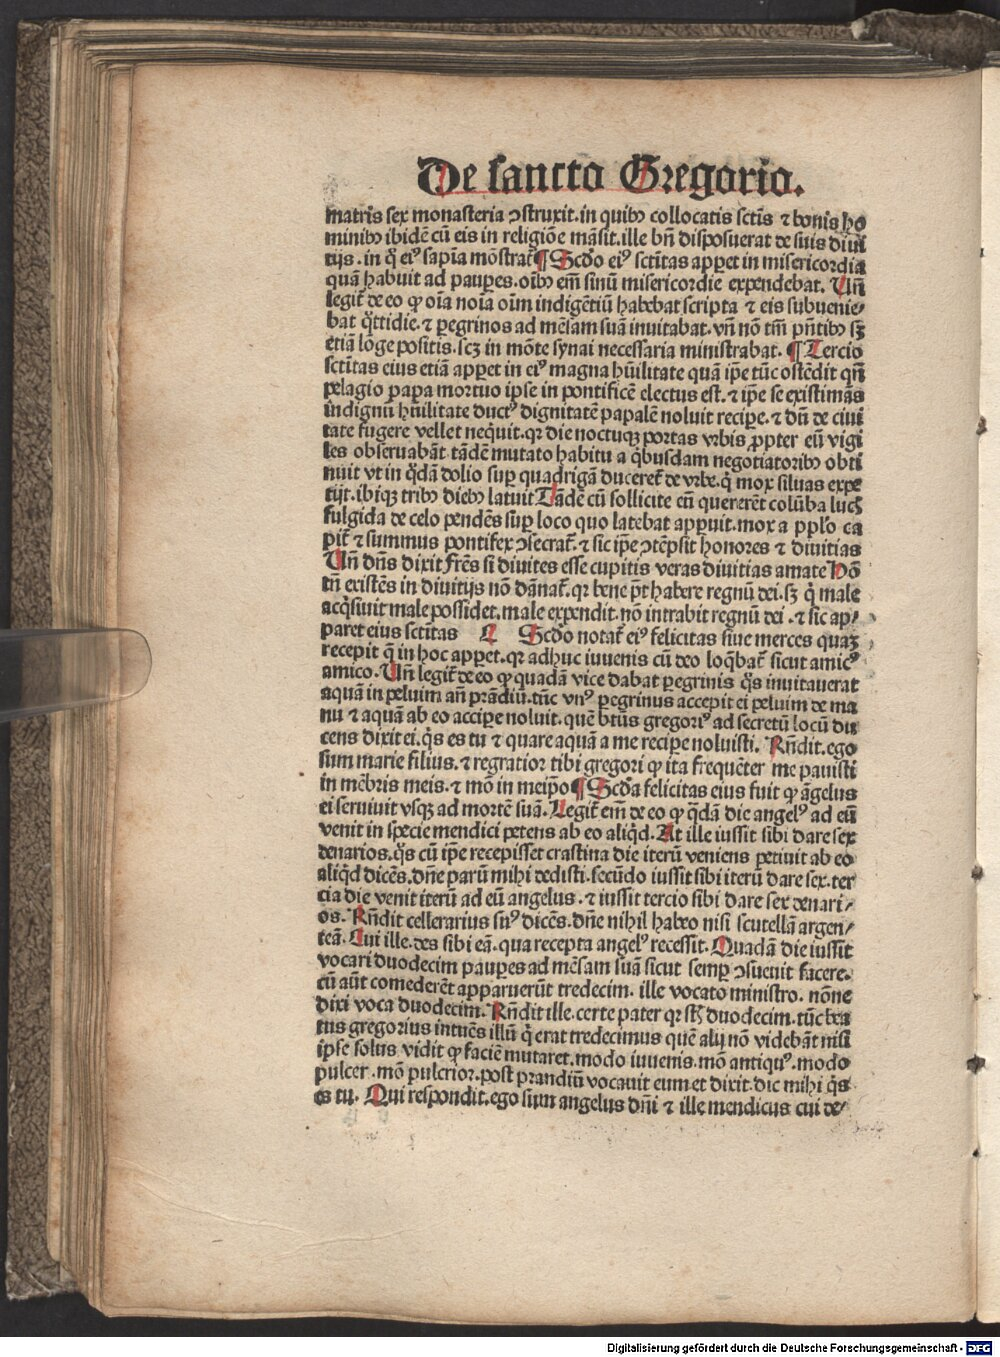 De sancto Gregorio.
matris sex monasteria ɔstruxit. in quibꝰ collocatis sctīs ⁊ bonis ho
minibꝰ ibidē cū eis in religiōe māsit. ille bn̄ disposuerat de suis diui
tijs. in q̄ eiꝰ sapīa mōstrat̄ ¶ Scd̄o eiꝰ sctītas appꝫet in misericordia
quā habuit ad paupes. oībꝰ em̄ sinū misericordie expendebat. Un̄
legit̄ de eo ꝙ oīa noīa oīm indigētiū habebat scripta ⁊ eis subuenie⸗
bat q̄ttidie. ⁊ pegrinos ad mēsam suā inuitabat. vn̄ nō tm̄ pn̄tibꝰ sꝫ
etiā lōge positis. scꝫ in mōte synai necessaria ministrabat. ¶ Tercio
sctītas eius etiā apparet in eiꝰ magna hūilitate quā ip̄e tūc ostēdit qn̄
pelagio papa mortuo ipse in pontificē electus est. ⁊ ip̄e se existimās
indignū hūilitate ductꝰ dignitatē papalē noluit recipe. ⁊ dū de ciui
tate fugere vellet neq̇uit. qꝛ die noctuqꝫ portas vrbis ꝓpter eū vigi
les obseruabāt tādē mutato habitu a q̇busdam negotiatoribꝰ obti
nuit vt in q̇dā dolio sup quadrigā duceret̄ de vrbe. q̇ mox siluas expe
tijt. ibiqꝫ tribꝰ diebꝰ latuit Tādē cū sollicite eū quererēt colūba luc
fulgida de celo pendēs sup loco quo latebat appuit. mox a pplo ca
pit̄ ⁊ summus pontifex ɔsecrat̄. ⁊ sic ip̄e ɔtēpsit honores ⁊ diuitias
Un̄ dn̄s dixit Fr̄es si diuites esse cupitis veras diuitias amate Hō
tn̄ existēs in diuitijs nō dānat̄. qꝛ bene pt̄ habere regnū dei. sꝫ q̇ male
acq̇siuit male possidet. male expendit. nō intrabit regnū dei. ⁊ sic ap⸗
paret eius sctītas ¶ Scd̄o notat̄ eiꝰ felicitas siue merces quaꝫ
recepit q̄ in hoc appet. qꝛ adhuc iuuenis cū deo loq̄bat̄ sicut amicꝰ
amico. Un̄ legit̄ de eo ꝙ quadā vice dabat pegrinis q̇s inuitauerat
aquā in peluim an̄ prādiū. tūc vnꝰ pegrinus accepit ei peluim de ma
nu ⁊ aquā ab eo accipe noluit. quē btūs gregoriꝰ ad secretū locū du
cens dixit ei. q̇s es tu ⁊ quare aquā a me recipe noluisti. Rn̄dit. ego
sum marie filius. ⁊ regratior tibi gregori ꝙ ita frequēter me pauisti
in mēbris meis. ⁊ mō in meip̄o ¶ Scd̄a felicitas eius fuit ꝙ āgelus
ei seruiuit vsqꝫ ad mortē suā. Legit̄ em̄ de eo ꝙ q̇dā die angelꝰ ad eū
venit in specie mendici petens ab eo aliq̇d. At ille iussit sibi dare sex
denarios. q̇s cū ip̄e recepisset crastina die iterū veniens petiuit ab eo
aliq̇d dicēs. dn̄e parū mihi dedisti. secūdo iussit sibi iterū dare sex. ter
cia die venit iterū ad eū angelus. ⁊ iussit tercio sibi dare sex denari⸗
os. Rn̄dit cellerarius suꝰ dicēs. dn̄e nihil habeo nisi scutellā argen⸗
teā. Cui ille. des sibi eā. qua recepta angelꝰ recessit. Quadā die iussit
vocari duodecim paupes ad mēsam suā sicut semp ɔsueuit facere.
cū aūt comederēt apparuerūt tredecim. ille vocato ministro. nōne
dixi voca duodecim. Rn̄dit ille. certe pater qꝛ st̄ duodecim. tūc bea
tus gregorius intuēs illū q̇ erat tredecimus quē alij nō videbāt nisi
ipse solus vidit ꝙ faciē mutaret. modo iuuenis. mō antiquꝰ. modo
pulcer. mō pulcrior. post prandiū vocauit eum et dixit. dic mihi q̇s
es tu. Qui respondit. ego sum angelus dn̄i ⁊ ille mendicus cui de⸗
Digitalisierung gefördert durch die Deutsche Forschungsgemeinschaft - DFG